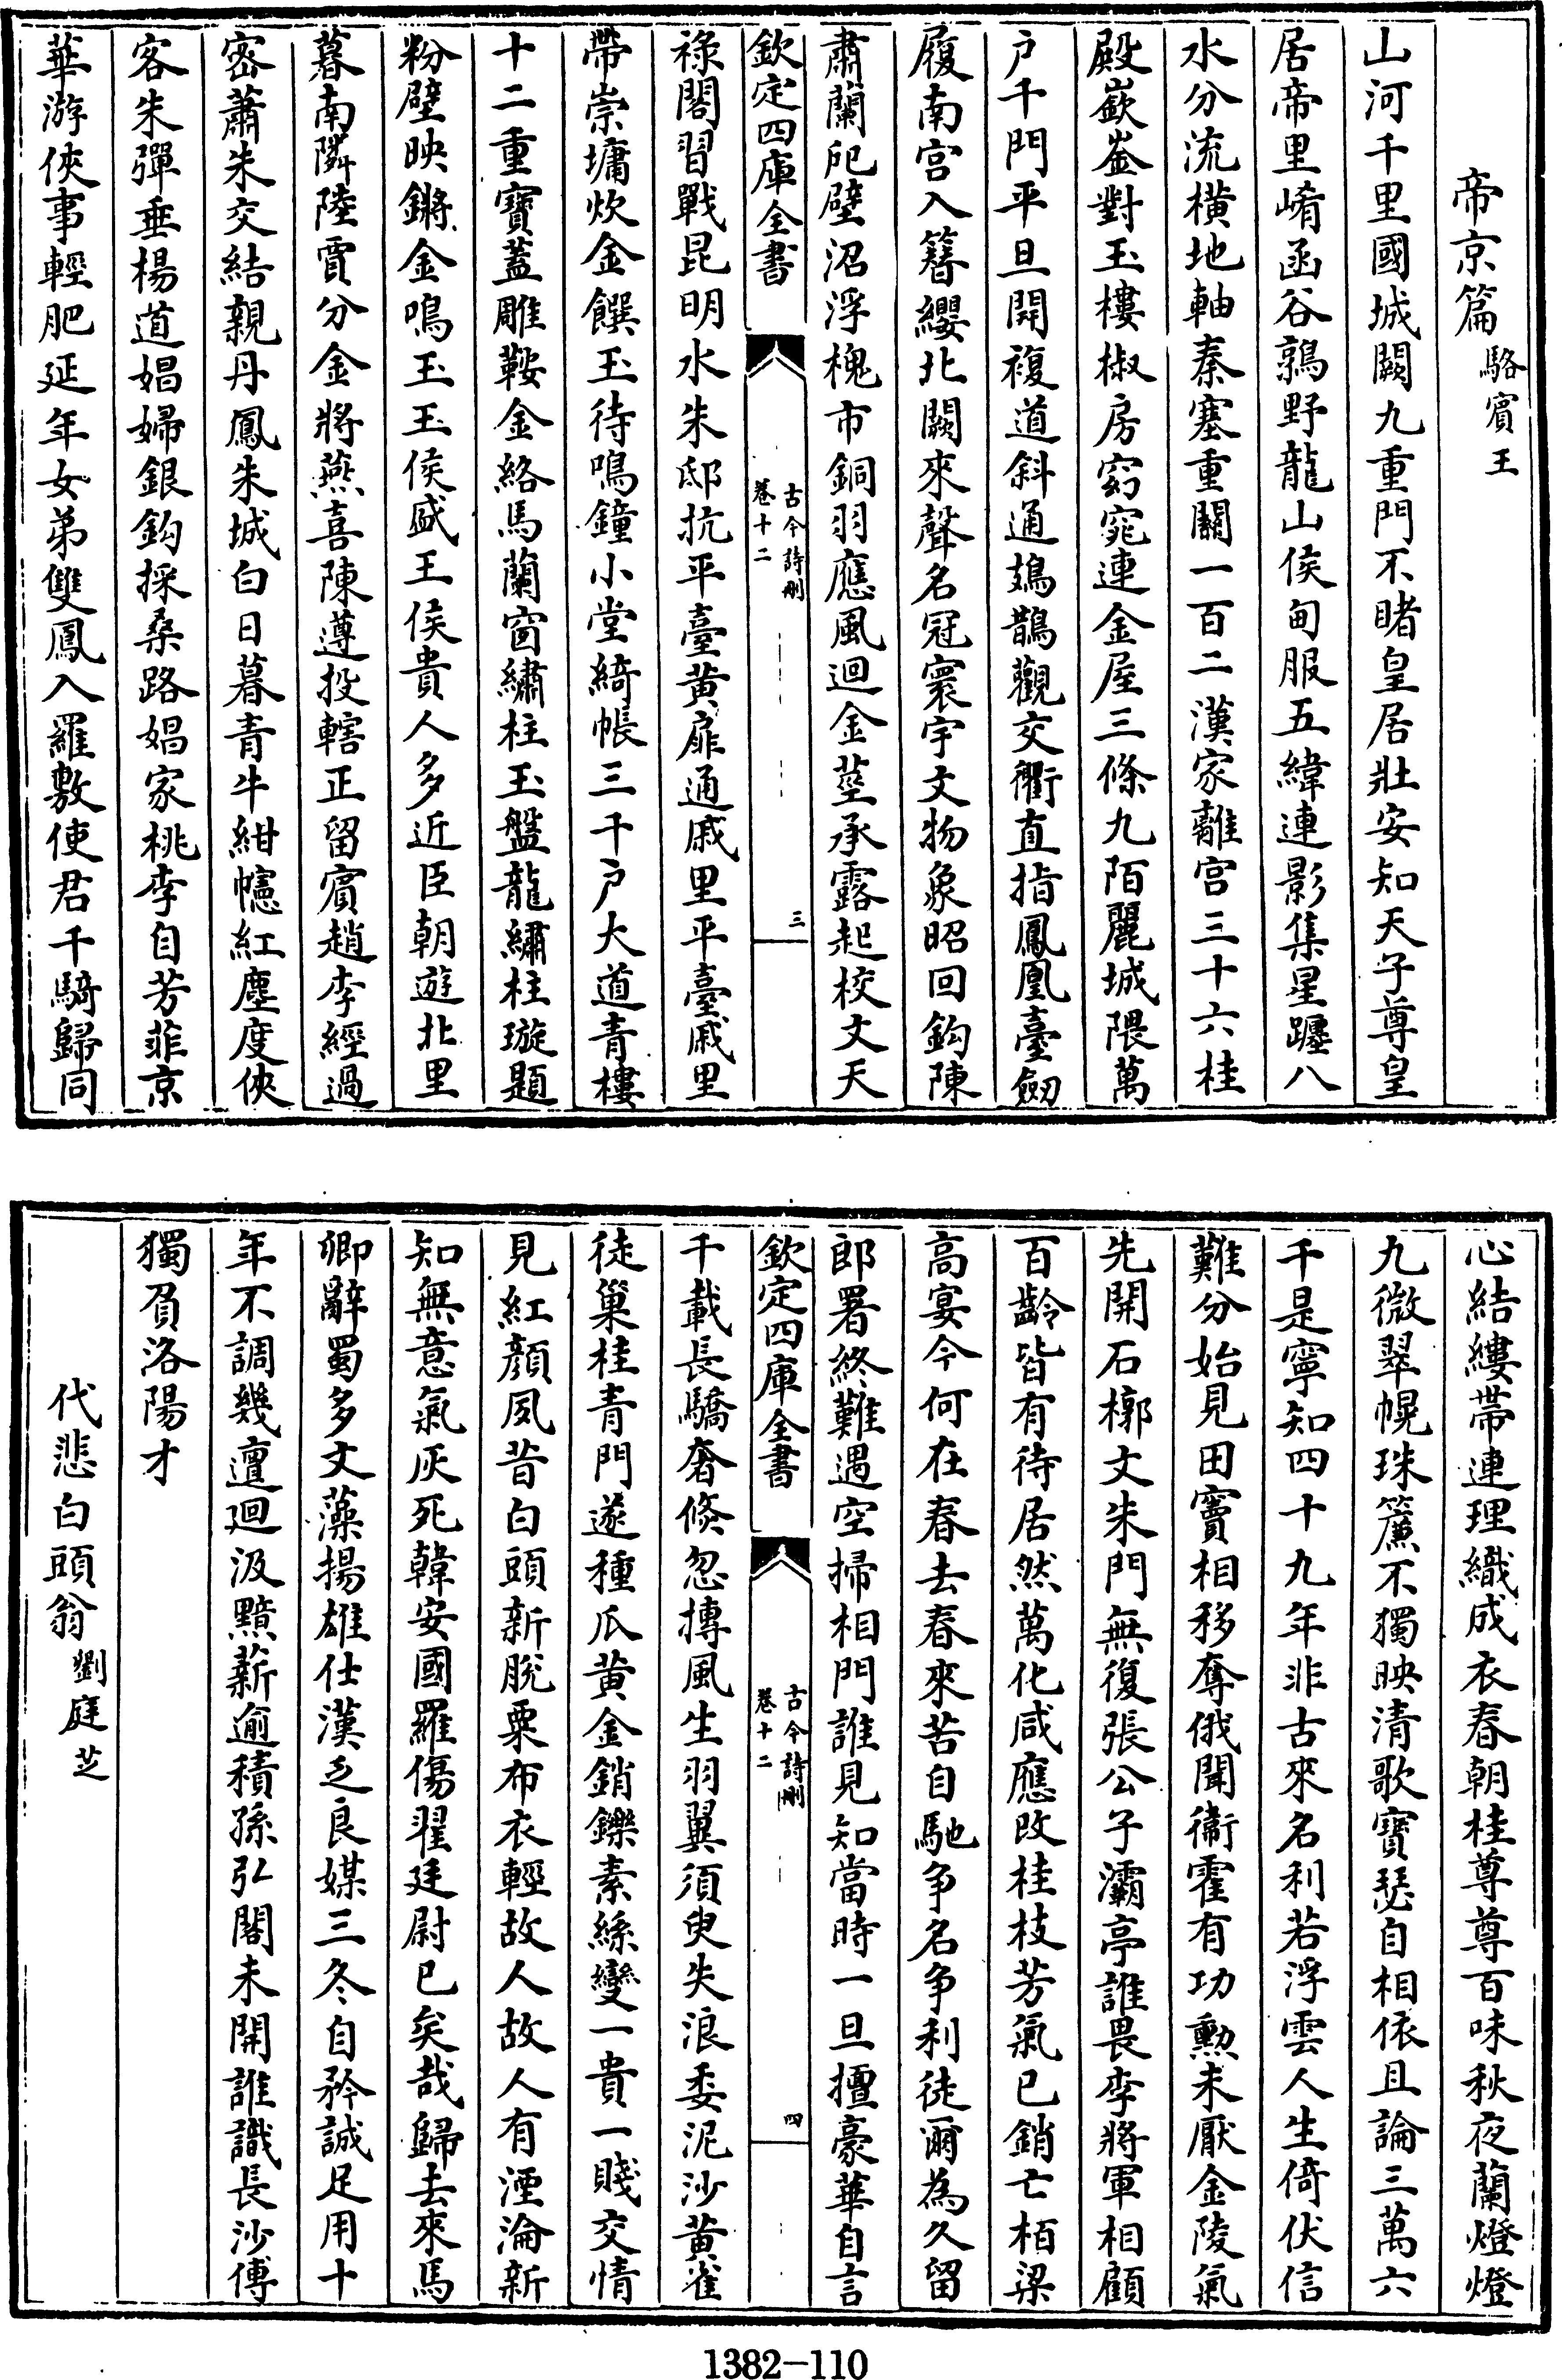 帝京篇駱賓王
山河千里國城闕九重門不睹皇居壯安知天子尊皇
居帝里崤函谷鶉野龍山侯甸服五緯連影集星躔八
水分流橫地軸秦塞重關一百二漢家離宫三十六桂
殿嶔崟對玉樓椒房窈窕連金屋三條九陌麗城隈萬
户千門平旦開複道斜通鳷鵲觀交衢直指鳳凰臺劔
履南宫入簪纓北闕來聲名冠寰宇文物象昭回鈎陳
肅蘭戺壁沼浮槐市銅羽應風迴金莖承露起校文天
欽定四庫全書
古今詩刪
卷十二
三
禄閣習戰昆明水朱邸抗平臺黄扉通戚里平臺戚里
帶崇墉炊金饌玉待鳴鐘小堂綺帳三千户大道青樓
十二重寶蓋雕鞍金絡馬蘭窗繡柱玉盤龍繡柱璇題
粉壁映鏘金鳴玉王侯盛王侯貴人多近臣朝遊北里
暮南隣陸賈分金將燕喜陳遵投轄正留賓趙李經過
密蕭朱交結親丹鳳朱城白日暮青牛紺幰紅塵度俠
客朱彈垂楊道娼婦銀鈎採桑路娼家桃李自芳菲京
華游俠事輕肥延年女弟雙鳳入羅敷使君千騎歸同
心結縷帶連理織成衣春朝桂尊尊百味秋夜蘭燈燈
九微翠幌珠簾不獨映清歌寶瑟自相依且論三萬六
千是寧知四十九年非古來名利若浮雲人生倚伏信
難分始見田竇相移奪俄聞衞霍有功勲未厭金陵氣
先開石槨文朱門無復張公子灞亭誰畏李將軍相顧
百齡皆有待居然萬化咸應改桂枝芳氣已銷亡栢梁
高宴今何在春去春來苦自馳争名争利徒爾為久留
郎署終難遇空掃相門誰見知當時一旦擅豪華自言
欽定四庫全書
古今詩刪
卷十二
四
千載長驕奢倏忽摶風生羽翼須臾失浪委泥沙黄雀
徒巢桂青門遂種瓜黄金銷鑠素絲變一貴一賤交情
見紅顔夙昔白頭新脫粟布衣輕故人故人有湮淪新
知無意氣灰死韓安國羅傷翟廷尉已矣哉歸去來馬
卿辭蜀多文藻揚雄仕漢乏良媒三冬自矜誠足用十
年不調幾邅迴汲黯薪逾積孫弘閣未開誰識長沙傅
獨負洛陽才
代悲白頭翁劉庭芝
1382-110